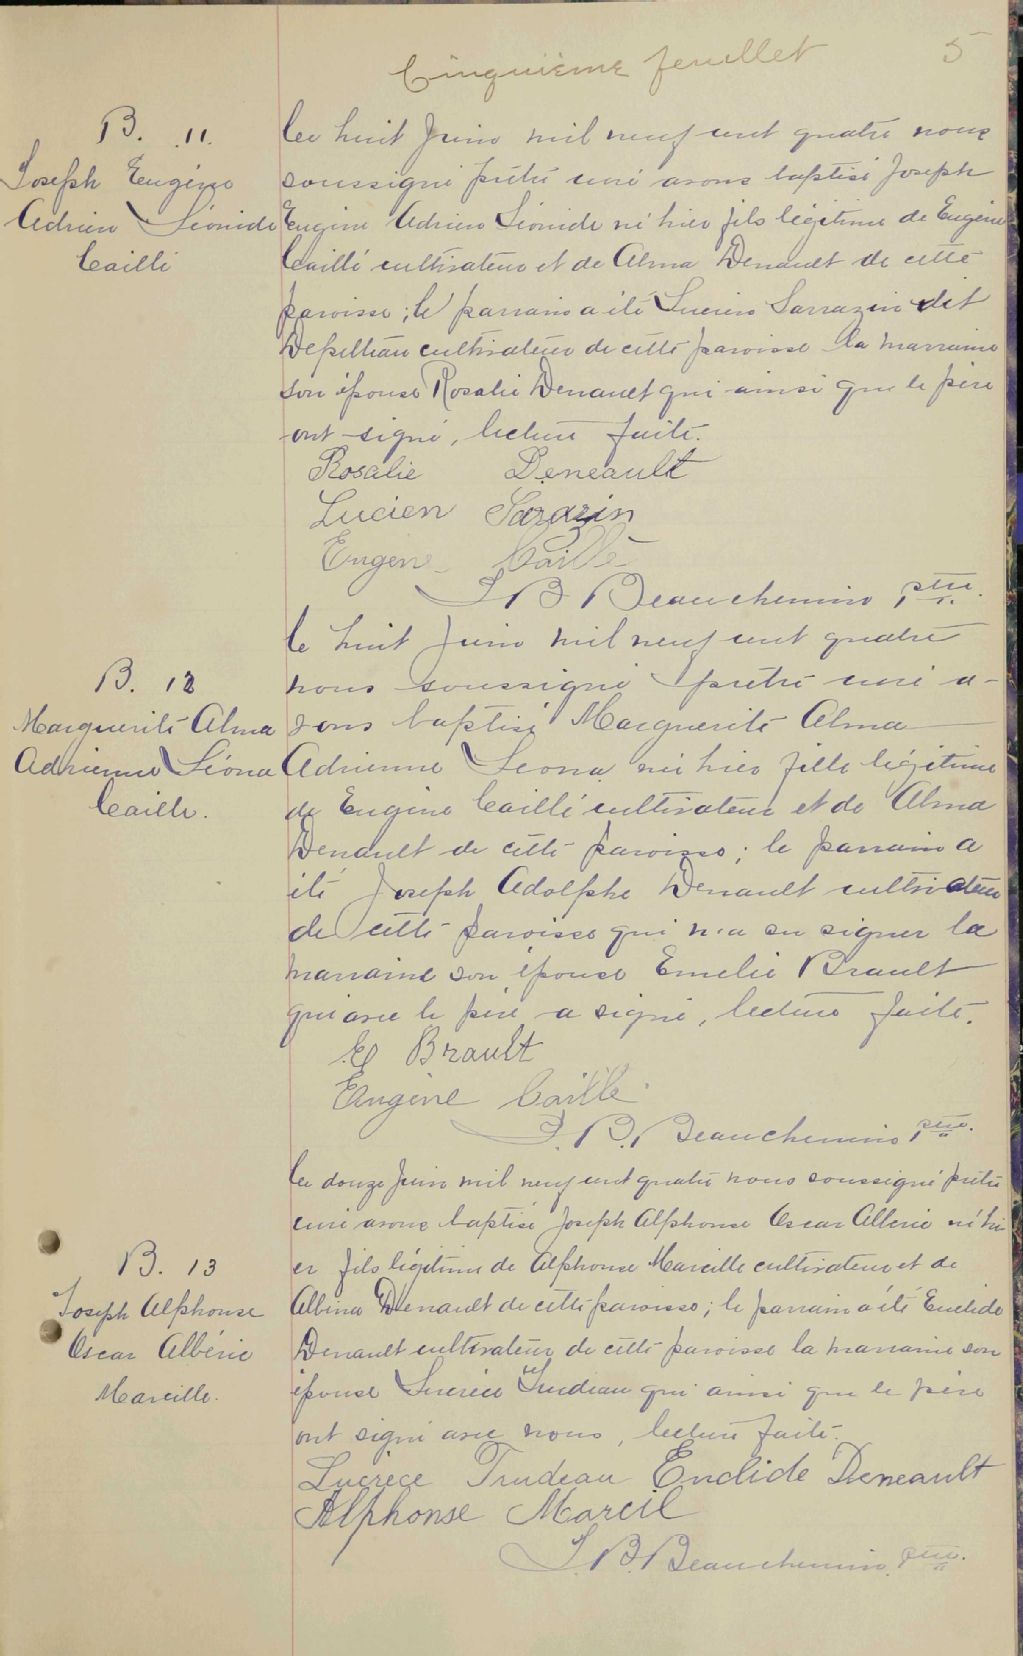 Cinquième feuillet 5
B. 11.
Joseph Eugène
Adrien Léonide
Caillé
Le huit Juin mil neuf cent quatre nous
soussigné prêtre curé avons baptisé Joseph
Eugène Adrien Léonide né hier fils légitime de Eugène
Caillé cultivateur et de Alma Denault de cette
paroisse ; le parrain a été Lucien Sarrazin dit
Depelteau cultivateur de cette paroisse la marraine
son épouse Rosalie Denault qui ainsi que le père
ont signé, lecture faite.
Rosalie Deneault
Lucien Sarazin
Eugene Caillé
J B Beauchemin ptre.
Le huit Juin mil neuf cent quatre
B. 12
Marguerite Alma
Adrienne Léona
Caille.
nous soussigné prêtre curé a-
vons baptisé Marguerite Alma
Adrienne Leona née hier fille légitime
de Eugène Caillé cultivateur et de Alma
Denault de cette paroisse ; le parrain a
été Joseph Adolphe Denault cultivateur
de cette paroisse qui n'a su signer la
marraine son épouse Emelie Brault
qui avec le père a signé, lecture faite.
E Brault
Eugène Caille
J. B. Beauchemin ptre.
Le douze Juin mil neuf cent quatre nous soussigné prêtre
curé avons baptisé Joseph Alphonse Oscar Alberic né hi
B. 13
Joseph Alphonse
Oscar Albéric
Marcille.
er fils légitime de Alphonse Marcille cultivateur et de
Albina Denault de cette paroisse ; le parrain a été Euclide
Denault cultivateur de cette paroisse la marraine son
épouse Lucrèce Trudeau qui ainsi que le père
ont signé avec nous, lecture faite.
Lucrèce Trudeau Euclide Deneault
Alphonse Marcil
J. B. Beauchemin ptre.